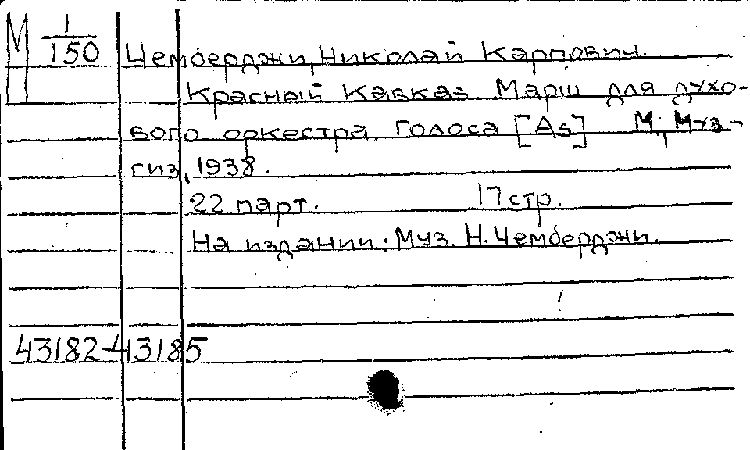 М 1/150 Чемберджи, Николай Карпович.
Красный Кавказ Марш для духо-
вого оркестра. Голоса [As] М., Муз-
гиз, 1938.
22 парт. 17 стр.
На издании: Муз. Н. Чемберджи.
43182-43185